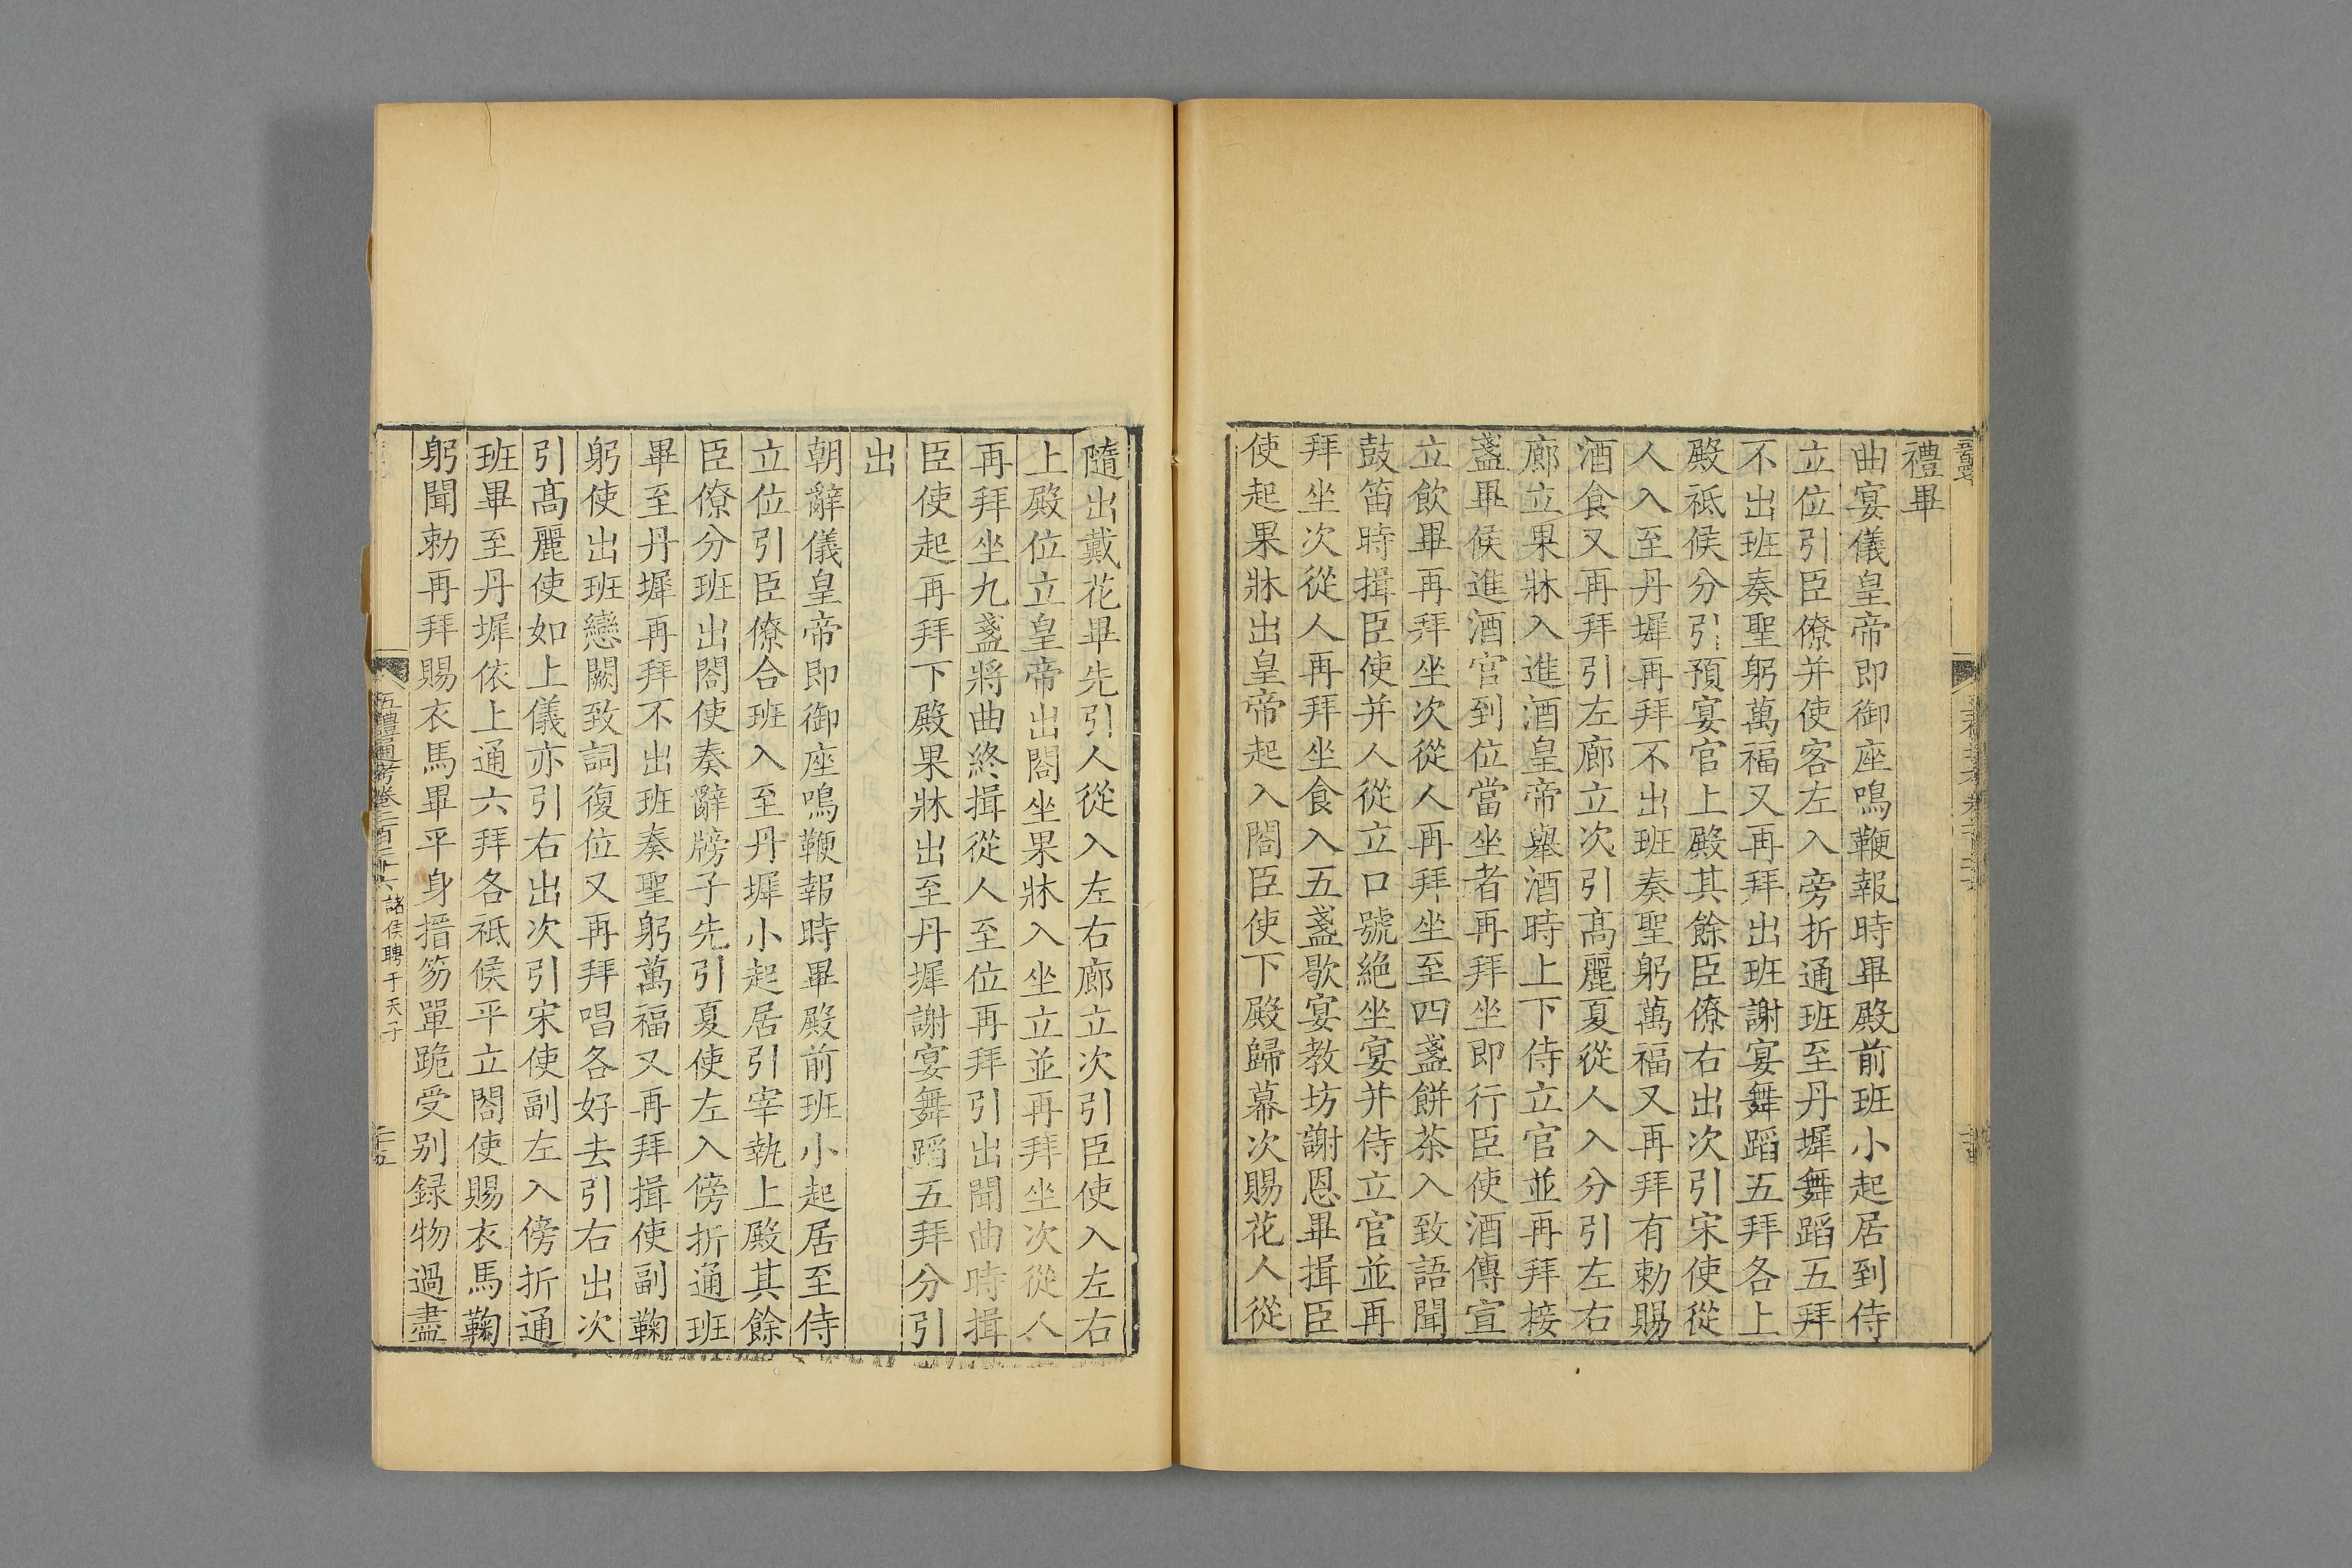 禮畢
曲宴儀皇帝即御座鳴鞭報時畢殿前班小起居到侍
立位引臣僚并使客左入旁折通班至丹墀舞蹈五拜
不出班奏聖躬萬福又再拜出班謝宴舞蹈五拜各上
殿祗候分引預宴官上殿其餘臣僚右出次引宋使從
人入至丹墀再拜不出班奏聖躬萬福又再拜有勅賜
酒食又再拜引左廊立次引高麗夏從人入分引左右
廊立果牀入進酒皇帝舉酒時上下侍立官並再拜接
盞畢候進酒官到位當坐者再拜坐即行臣使酒傳宣
立飲畢再拜坐次從人再拜坐至四盞餅茶入致語聞
鼓笛時揖臣使并人從立口號絕坐宴并侍立官並再
拜坐次從人再拜坐食入五盞歇宴教坊謝恩畢揖臣
使起果牀出皇帝起入閤臣使下殿歸幕次賜花人從
隨出戴花畢先引人從入左右廊立次引臣使入左右
上殿位立皇帝出閤坐果牀入坐立並再拜坐次從人
再拜坐九盞將曲終揖從人至位再拜引出聞曲時揖
臣使起再拜下殿果牀出至丹墀謝宴舞蹈五拜分引
出
朝辭儀皇帝即御座鳴鞭報時畢殿前班小起居至侍
立位引臣僚合班入至丹墀小起居引宰執上殿其餘
臣僚分班出閤使奏辭牓子先引夏使左入傍折通班
畢至丹墀再拜不出班奏聖躬萬福又再拜揖使副鞠
躬使出班戀闕致詞復位又再拜唱各好去引右出次
引高麗使如上儀亦引右出次引宋使副左入傍折通
班畢至丹墀依上通六拜各祗候平立閤使賜衣馬鞠
躬聞勅再拜賜衣馬畢平身搢笏單跪受别録物過盡
五禮通考卷二百二十六 諸侯聘于天子 二十五